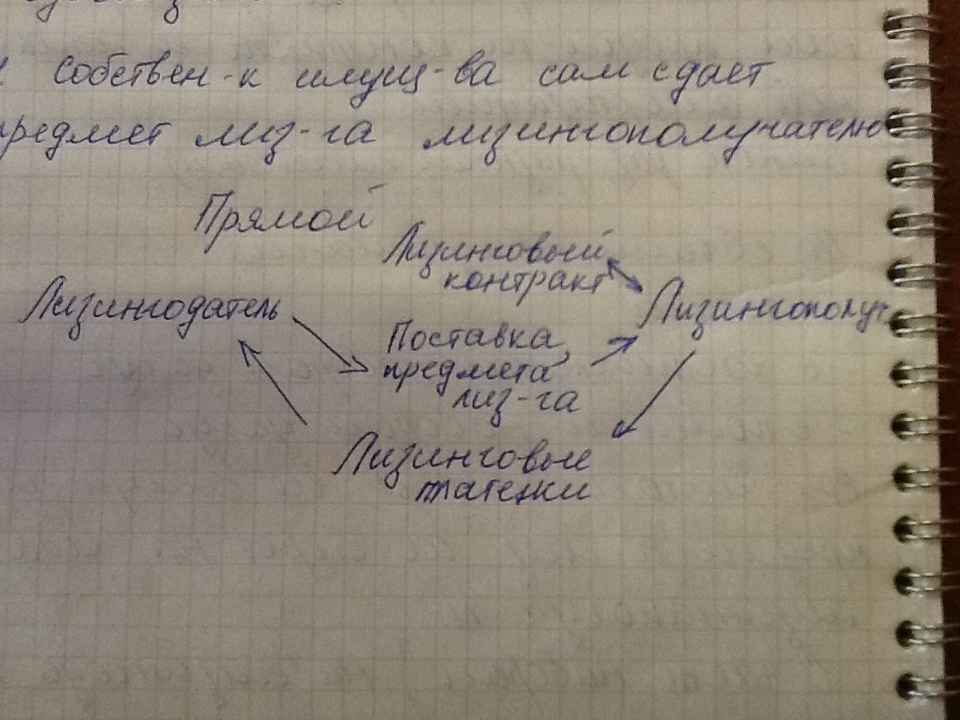 Собствен-к имущ-ва сам сдает
предмет лиз-га лизингополучателю
Прямой
Лизинговый
контракт
Лизингодатель
Лизингополуч
Поставка
предмета
лиз-га
Лизинговые
платежи